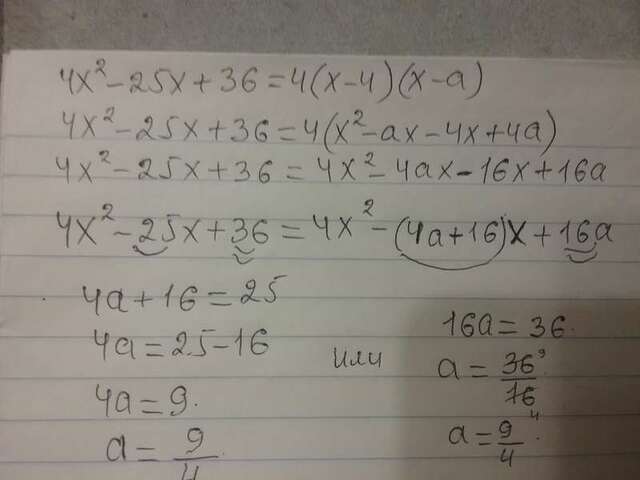 4x² - 25x + 36 = 4(x - 4)(x - a)
4x² - 25x + 36 = 4(x² - ax - 4x + 4a)
4x² - 25x + 36 = 4x² - 4ax - 16x + 16a
4x² - 25x + 36 = 4x² - (4a + 16)x + 16a
4a + 16 = 25
4a = 25 - 16
4a = 9.
a = 9/4.
или
16a = 36.
a = 36⁹/16₄
a = 9/4.